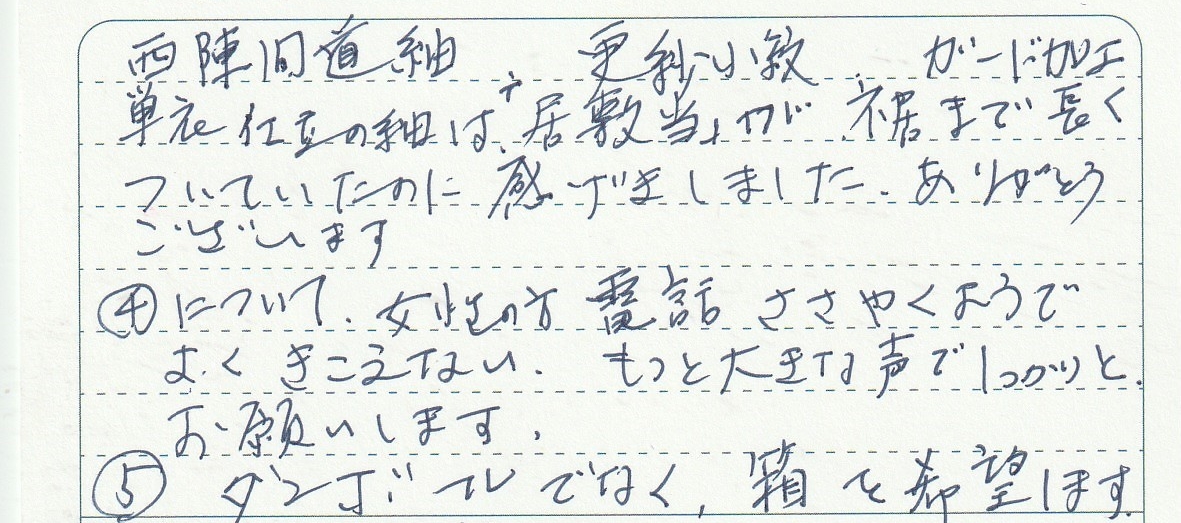 西陣間道紬 更紗小紋 ガード加工
単衣仕立の紬は、居敷当が裾まで長く
ついていたのに感げきしました。ありがとう
ございます
④について、女性の方 電話 ささやくようで
よくきこえない. もっと大きな声でしっかりと.
お願いします.
⑤ ダンボールでなく, 箱を希望します.